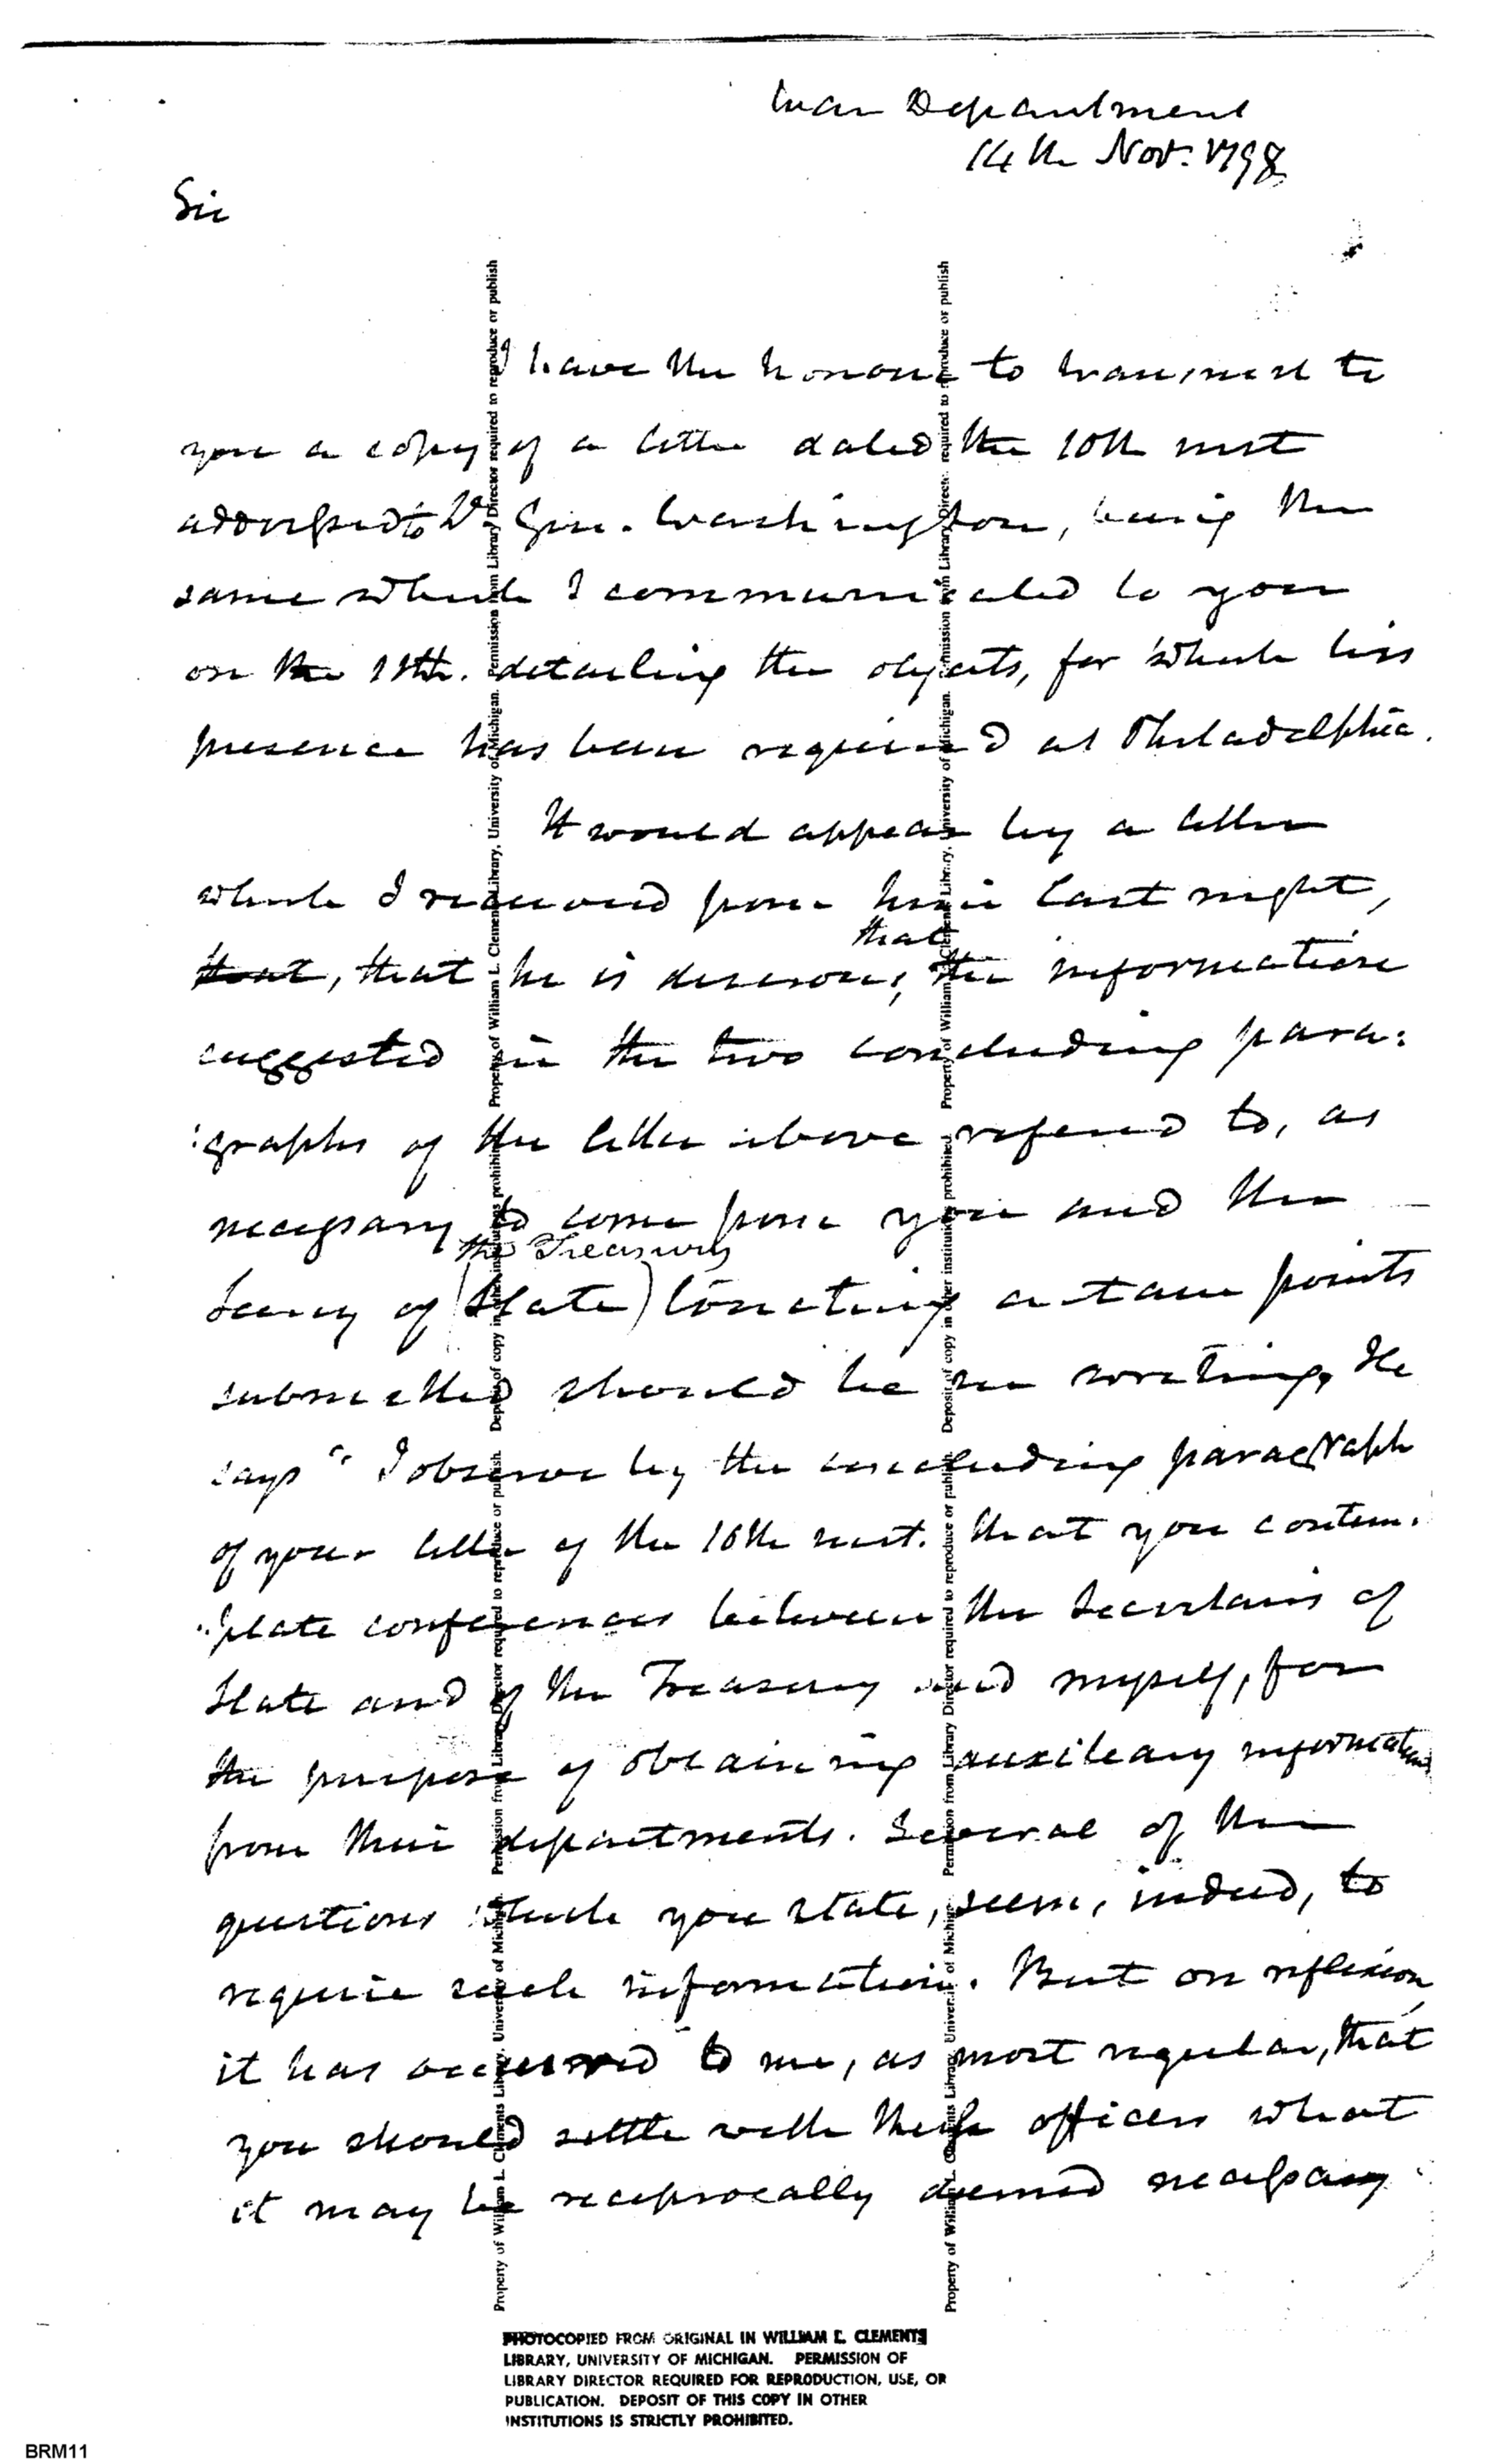 War Department
14th Nov: 1798
Sir
I have the honour to transmit to
you a copy of a letter dated the 10th inst
addressed to Lt Gen. Washington, being the
same which I communicated to you
on the 11th. detailing the objects, for which his
presence has been required at Philadelphia.
It would appear by a letter
which I received from him last night,
that, that he is desirous, that the information
suggested in the two concluding para:
:graphs of the letter above refered to, as
necessary to come from you and the
the Treasury
Secry of (State) touching certain points
submitted should be in writing. He
says " I observe by the concluding paragraph
of your letter of the 10th inst. that you contem.
"plate conferences between the Secretaries of
State and of the Treasury and myself, for
the purpose of obtaining auxileary information
from their departments. Several of the
questions which you state, seem, indeed, to
require such information. But on reflexion
it has occurred to me, as most regular, that
you should settle with these officers what
it may be reciprocally deemed necessary
Property of William L. Clements Library, University of Michigan. Permission from Library Director required to reproduce or publish. Deposit of copy in other institutions prohibited. Property of William L. Clements Library, University of Michigan. Permission from Library Director required to reproduce or publish
Property of William L. Clements Library, University of Michigan. Permission from Library Director required to reproduce or publish. Deposit of copy in other institutions prohibited. Property of William L. Clements Library, University of Michigan. Permission from Library Director required to reproduce or publish
PHOTOCOPIED FROM ORIGINAL IN WILLIAM L. CLEMENTS
LIBRARY, UNIVERSITY OF MICHIGAN. PERMISSION OF
LIBRARY DIRECTOR REQUIRED FOR REPRODUCTION, USE, OR
PUBLICATION. DEPOSIT OF THIS COPY IN OTHER
INSTITUTIONS IS STRICTLY PROHIBITED.
BRM11